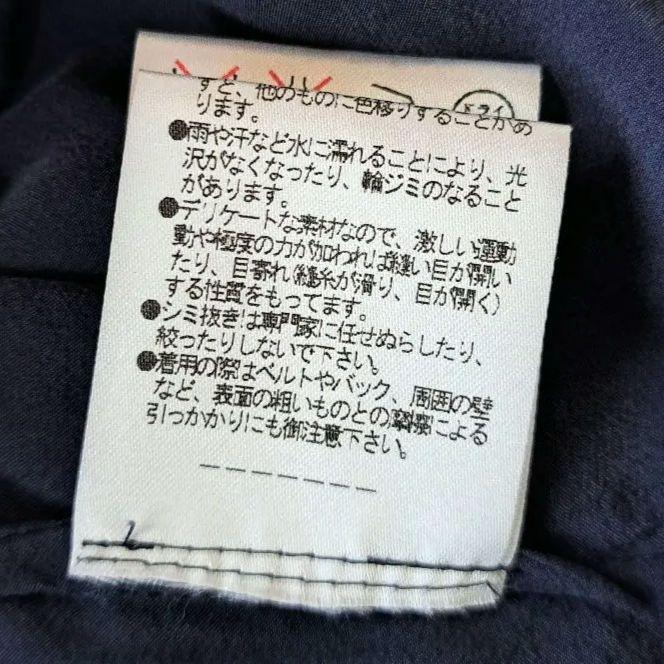 ドライ
すと、他のものに色移りすることがあ
ります。
●雨や汗など水に濡れることにより、光
沢がなくなったり、輪ジミのなること
があります。
●デリケートな素材なので、激しい運動
動や極度の力が加われば縫い目が開い
たり、目寄れ(縫糸が滑り、目が開く)
する性質をもってます。
●シミ抜きは専門家に任せぬらしたり、
絞ったりしないで下さい。
●着用の際はベルトやバック、周囲の壁
など、表面の粗いものとの摩擦による
引っかかりにも御注意下さい。